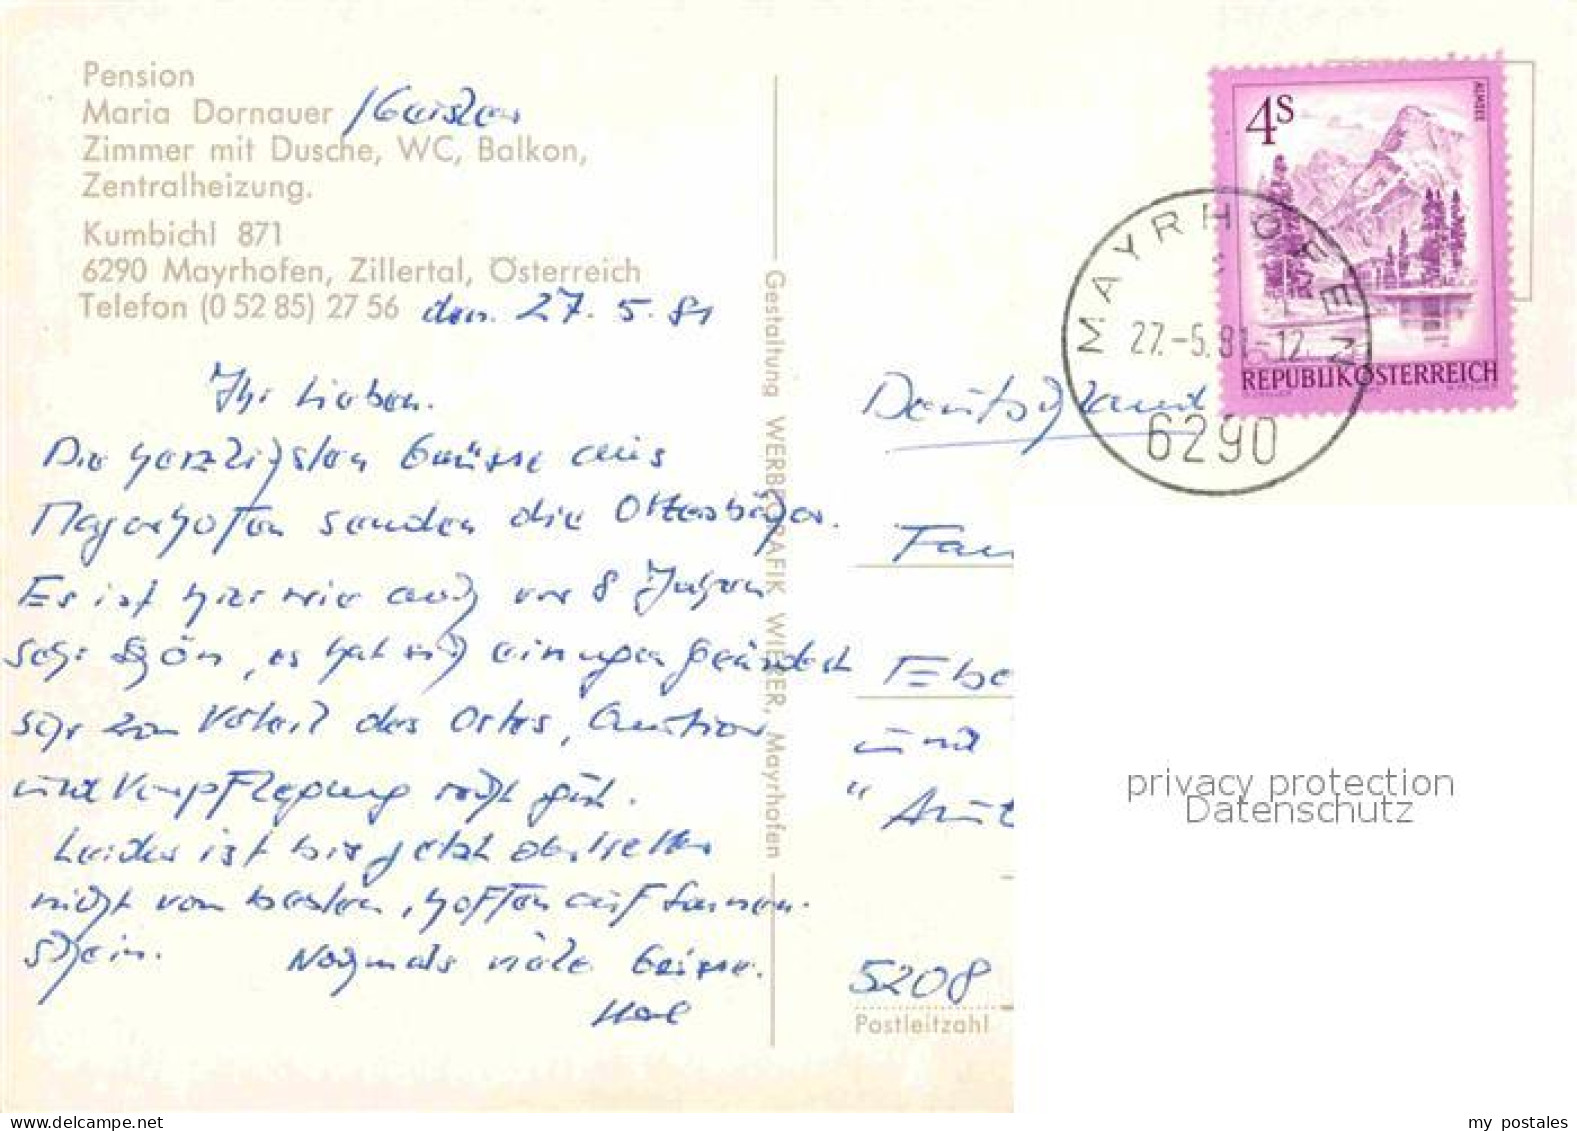 Pension
Maria Dornauer
Zimmer mit Dusche, WC, Balkon,
Zentralheizung.
Kumbichl 871
6290 Mayrhofen, Zillertal, Österreich
Telefon (0 52 85) 27 56 den. 27. 5. 81
Ihr Lieben.
Die herzlichsten Grüsse aus
Mayerhofen senden die
Es ist hier wie auch vor 8 Jahren
sehr schön, es hat sich einiges geändert
sehr zum Vorteil des Ortes,
und Verpflegung recht gut.
Leider ist bis jetzt das Wetter
nicht vom besten, hoffen auf Sonnen-
schein. Nochmals viele Grüsse.
Gestaltung WERBEGRAFIK WIERER, Mayrhofen
4S
ALMSEE
REPUBLIK ÖSTERREICH
MAYRHOFEN
27.-5.81-12
6290
Deutschland
Fam
Ebe
und
" Aut
5208
Postleitzahl
privacy protection
Datenschutz
my postales